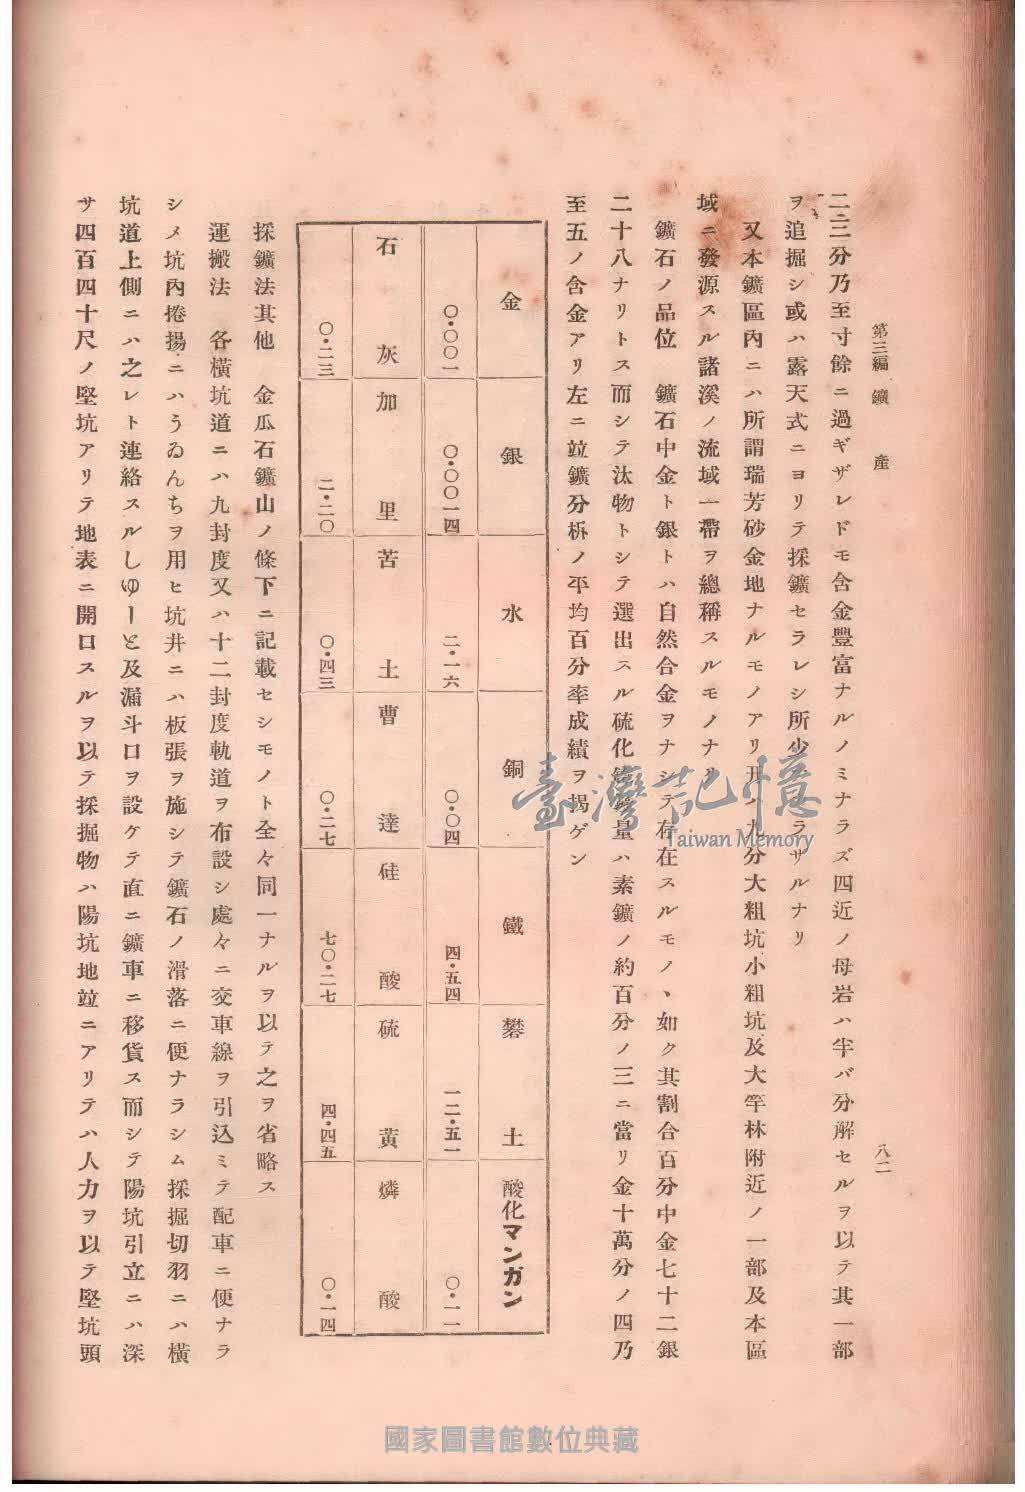 第三編 鑛産
八二
二三分乃至寸餘ニ過ギザレドモ含金豐富ナルノミナラズ四近ノ母岩ハ半バ分解セルヲ以テ其一部
ヲ追掘シ或ハ露天式ニヨリテ採鑛セラレシ所少カラサルナリ
又本鑛區內ニハ所謂瑞芳砂金地ナルモノアリ开ハ九分大粗坑小粗坑及大竿林附近ノ一部及本區
域ニ發源スル諸溪ノ流域一帶ヲ總稱スルモノナリ
鑛石ノ品位 鑛石中金ト銀トハ自然合金ヲナシテ存在スルモノヽ如ク其割合百分中金七十二銀
二十八ナリトス而シテ汰物トシテ選出スル硫化鐵鑛量ハ素鑛ノ約百分ノ三ニ當リ金十萬分ノ四乃
至五ノ含金アリ左ニ竝鑛分析ノ平均百分率成績ヲ揭ゲン
金 銀 水 銅 鐵 礬土 酸化マンガン
〇・〇〇一 〇・〇〇一四 二・一六 〇・〇四 四・五四 一二・五一 〇・一一
石灰 加里 苦土 曹達 硅酸 硫黃 燐酸
〇・二三 二・二〇 〇・四三 〇・二七 七〇・二七 四・四五 〇・一四
採鑛法其他 金瓜石鑛山ノ條下ニ記載セシモノト全々同一ナルヲ以テ之ヲ省略ス
運搬法 各橫坑道ニハ九封度又ハ十二封度軌道ヲ布設シ處々ニ交車線ヲ引込ミテ配車ニ便ナラ
シメ坑內捲揚ニハうゐんちヲ用ヒ坑井ニハ板張ヲ施シテ鑛石ノ滑落ニ便ナラシム採掘切羽ニハ橫
坑道上側ニハ之レト連絡スルしゆーと及漏斗口ヲ設ケテ直ニ鑛車ニ移貨ス而シテ陽坑引立ニハ深
サ四百四十尺ノ堅坑アリテ地表ニ開口スルヲ以テ採掘物ハ陽坑地竝ニアリテハ人力ヲ以テ堅坑頭
臺灣記憶
Taiwan Memory
國家圖書館數位典藏